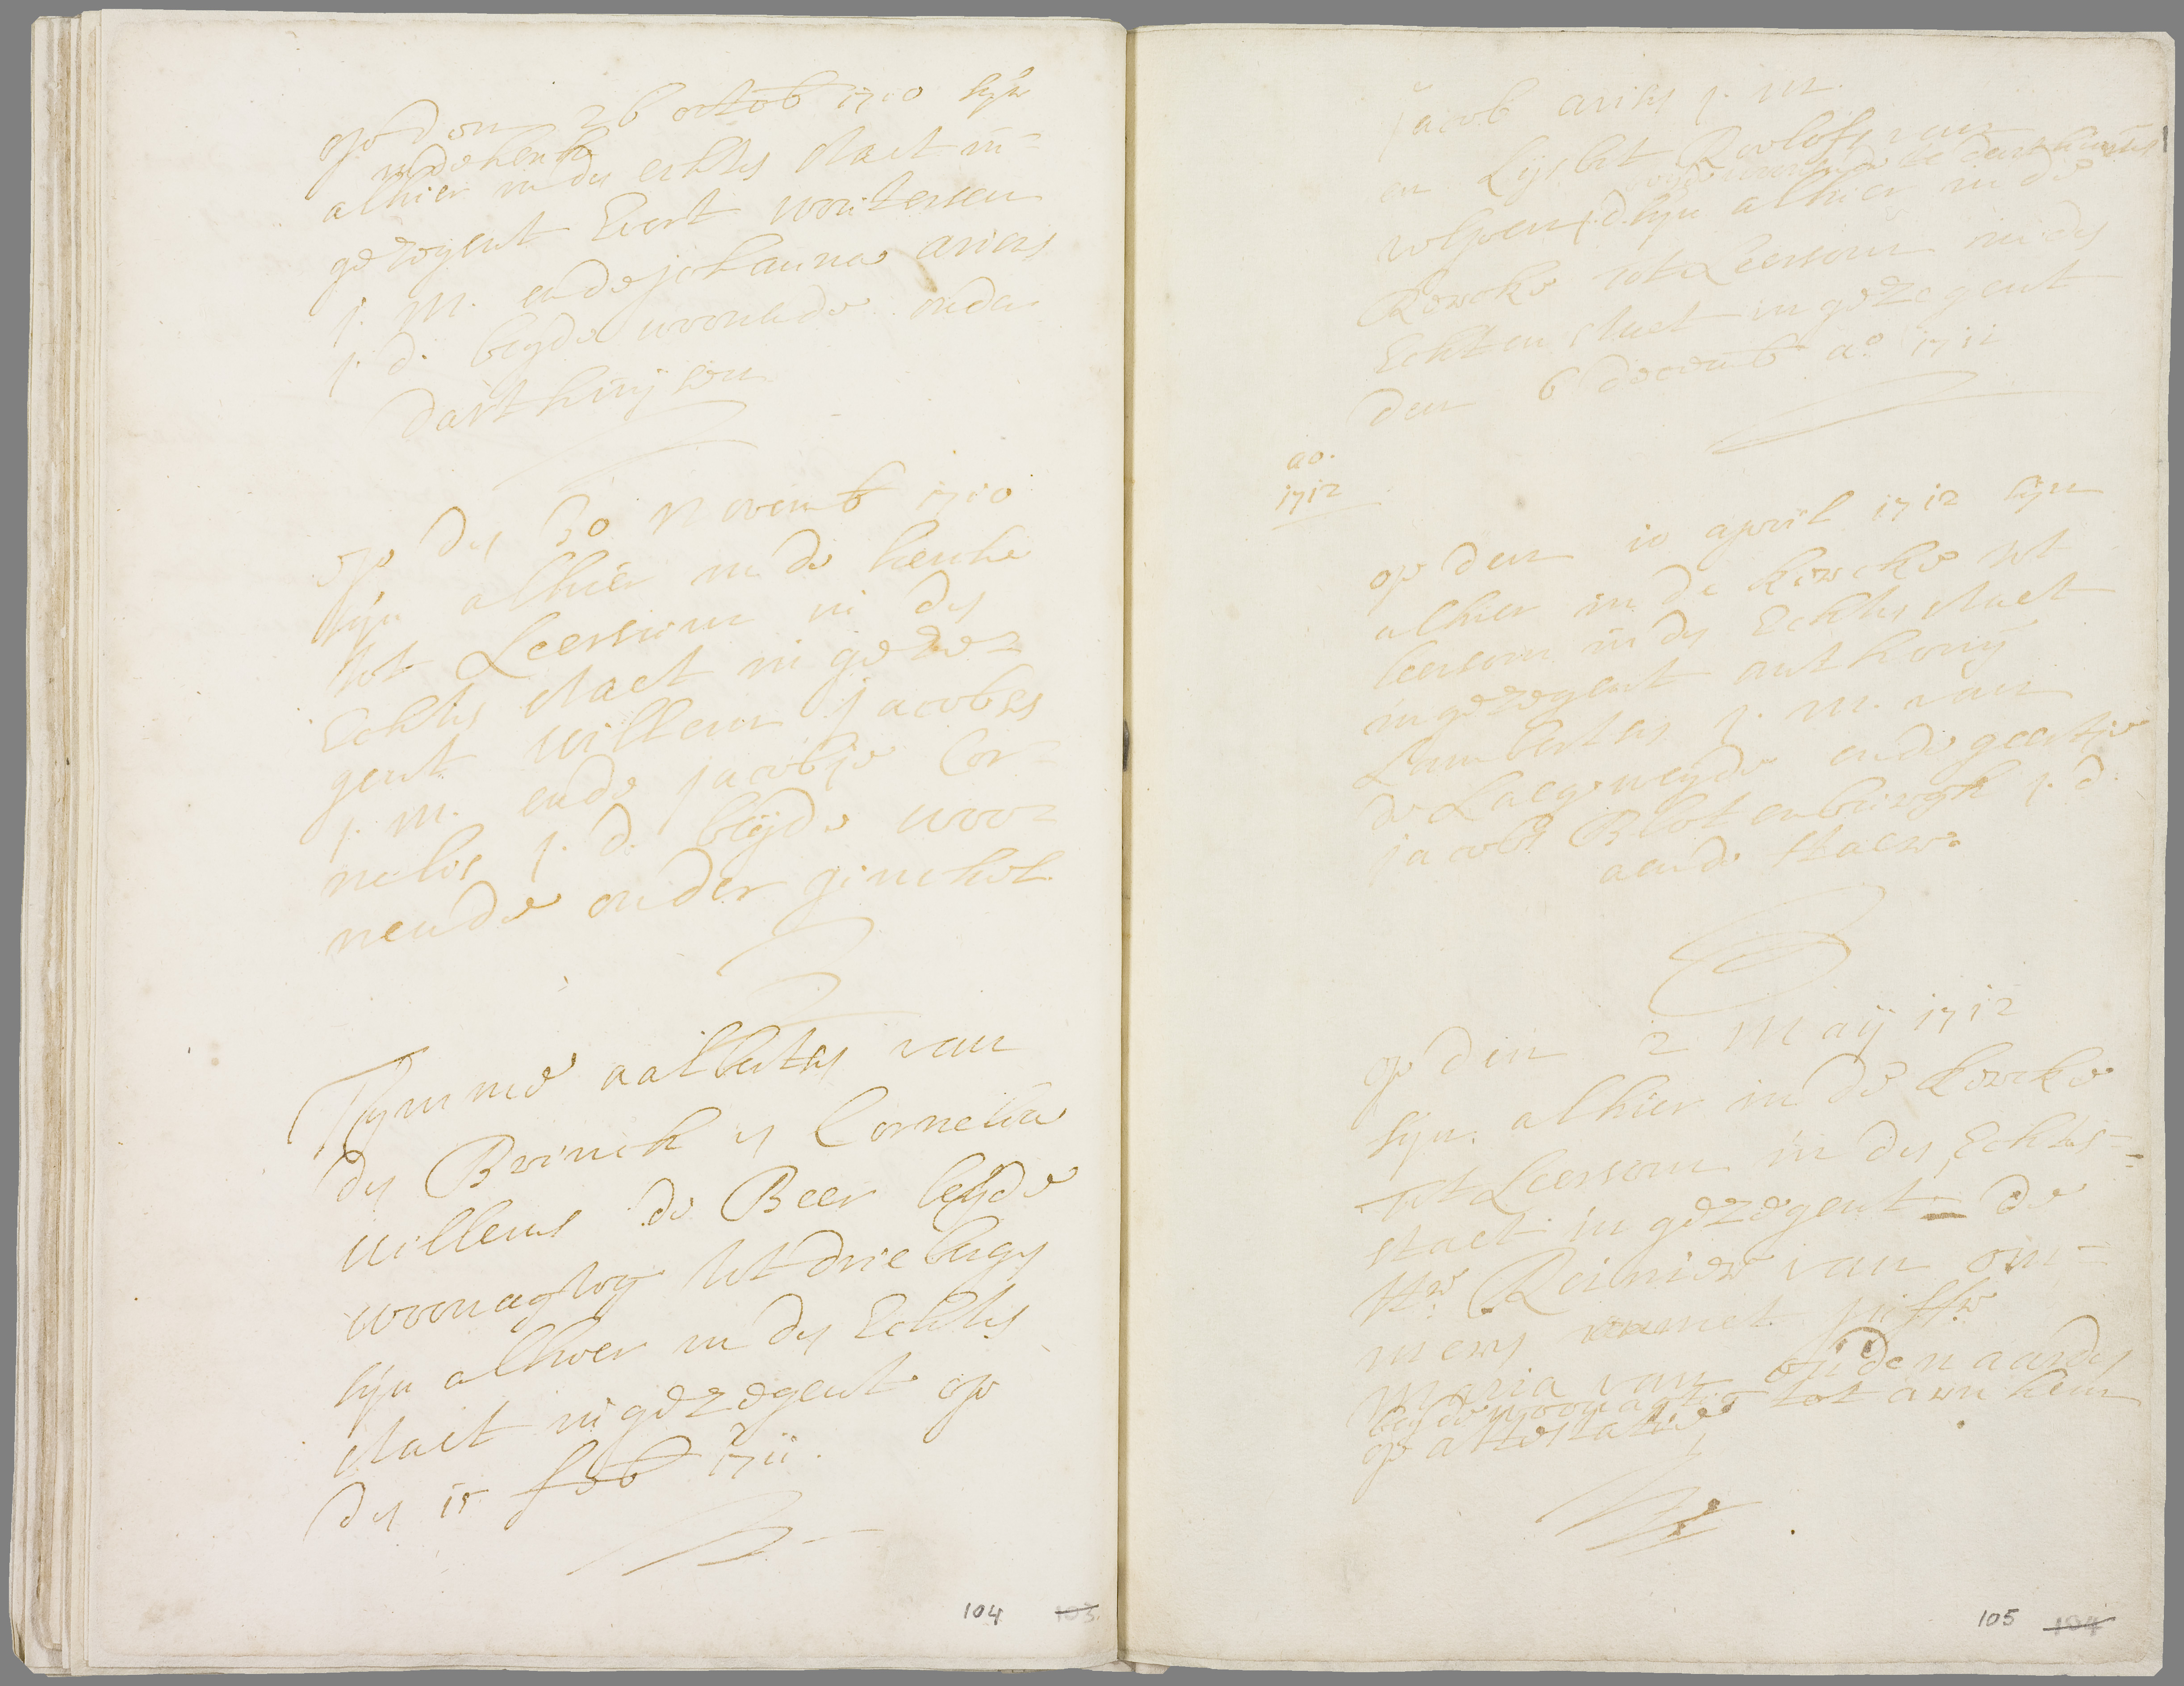 op den 26 octob 1710 sijn
in de kerk
alhier in des echts staet in=
gezegent Evert woutersen
j. m. ende johanna ariens
j. d. beyde woonende onder
darthuijsen
op des 30 novemb 1710
sijn alhier in de kerke
tot Leersum in des
Echts staet in geze=
gent willem jacobss
j. m. ende jacobje Cor=
nelis j. d. beijde woo=
nende onder ginckel
Thymme aalbertss van
des Brinck en Cornelia
willems de Beer beijde
woonagtog tot driebergs
sijn alhier in des Echts
staet in gezegent op
des 15 feb 1711.
104 103.
Jacob ariss j. m.
en Lijsbet Roelofs van
wolpen j. d. sijn alhier in de
Kercke tot Leersom in des
Echten staet in gezegent
den 6 decemb ao 1711
ao.
1712
op den 10 april 1712 sijn
alhier in de kercke tot
leersom in des Echts staet
in gezegent anthonij
Lambertss j. m. van
de Laegeweyde ende geertje
jacobs Blotenburgh j. d.
aen de Haer.
op den 2 Maij 1712
sijn alhier in de kercke
tot Leersom in des Echts=
staet in gezegent = de
Hr. Reinier van om=
mers met juffr
Maria van oudenaarde
beyde woonagtig tot arnhem
op attestatie
105 104